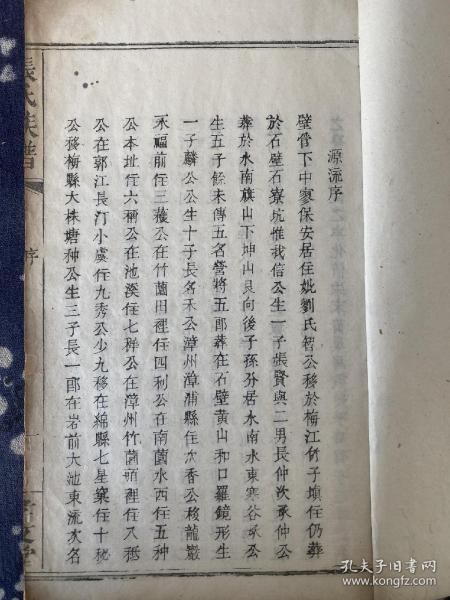 源流序
壁管下中寥保安居住妣劉氏智公移於梅江竹子壩任仍葬
於石壁石寮坑惟我信公生一子振賢與二男長仲次承仲公
葬於水南旗山下坤山艮向後子孫分居水南水東寒谷承公
生五子餘未傳五名營將五郎葬在石壁黃山和口羅鏡形生
一子麟公公生十子長名禾公漳州漳浦縣任次香公移龍巖
禾福前任三穫公在竹蘭田裡任四利公在南菌水西任五種
公本址任六稱公在池溪任七稈公在漳州竹菌頭裡任八秪
公在郭江長汀小虞任九秀公少九移在綿縣七星寨任十秘
公移梅縣大株塘种公生三子長一郎在岩前大池東流次名
張氏族譜
序
孔夫子旧书网